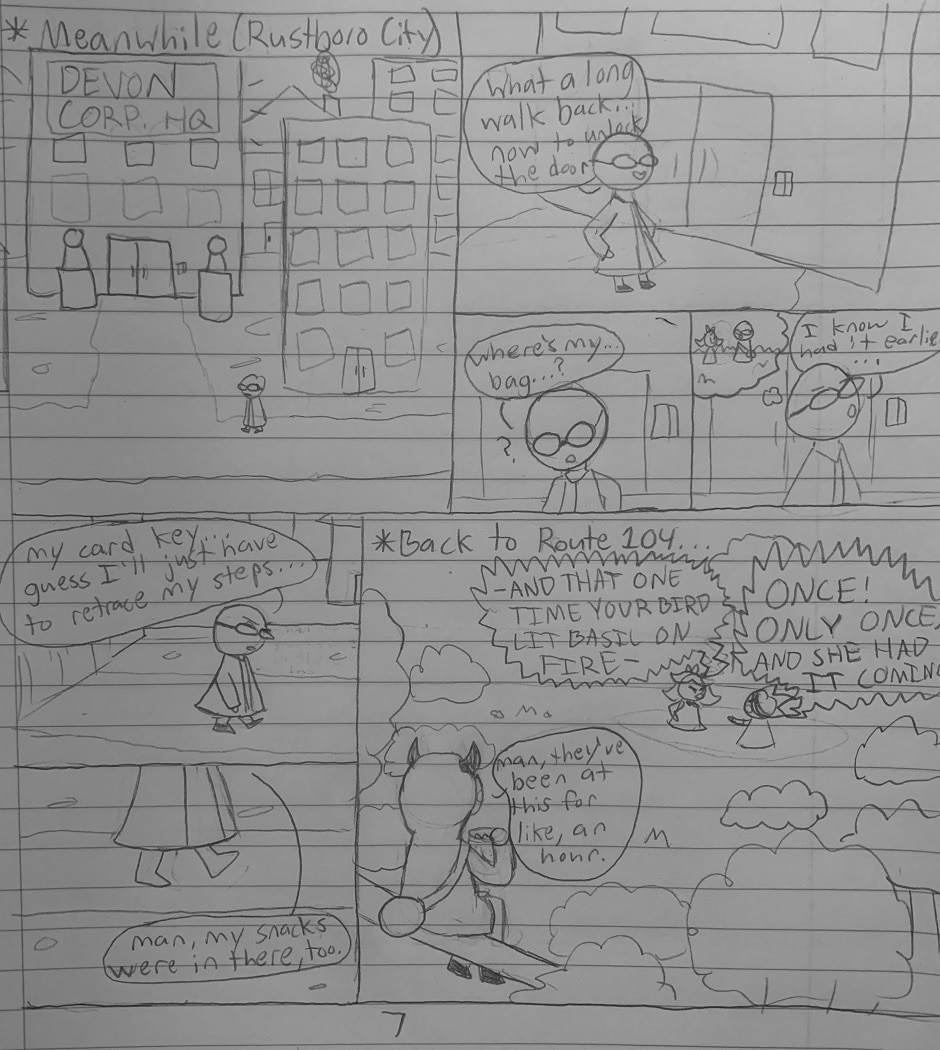 *Meanwhile (Rustboro City)
DEVON
CORP. HQ
what a long
walk back...
now to unlock
the door
where's my...
bag...?
?
I know I
had it earlie
...
my card key...
guess I'll just have
to retrace my steps...
man, my snacks
were in there, too.
*Back to Route 104...
-AND THAT ONE
TIME YOUR BIRD
LIT BASIL ON
FIRE-
ONCE!
ONLY ONCE,
AND SHE HAD
IT COMING
man, they've
been at
this for
like, an
hour.
7